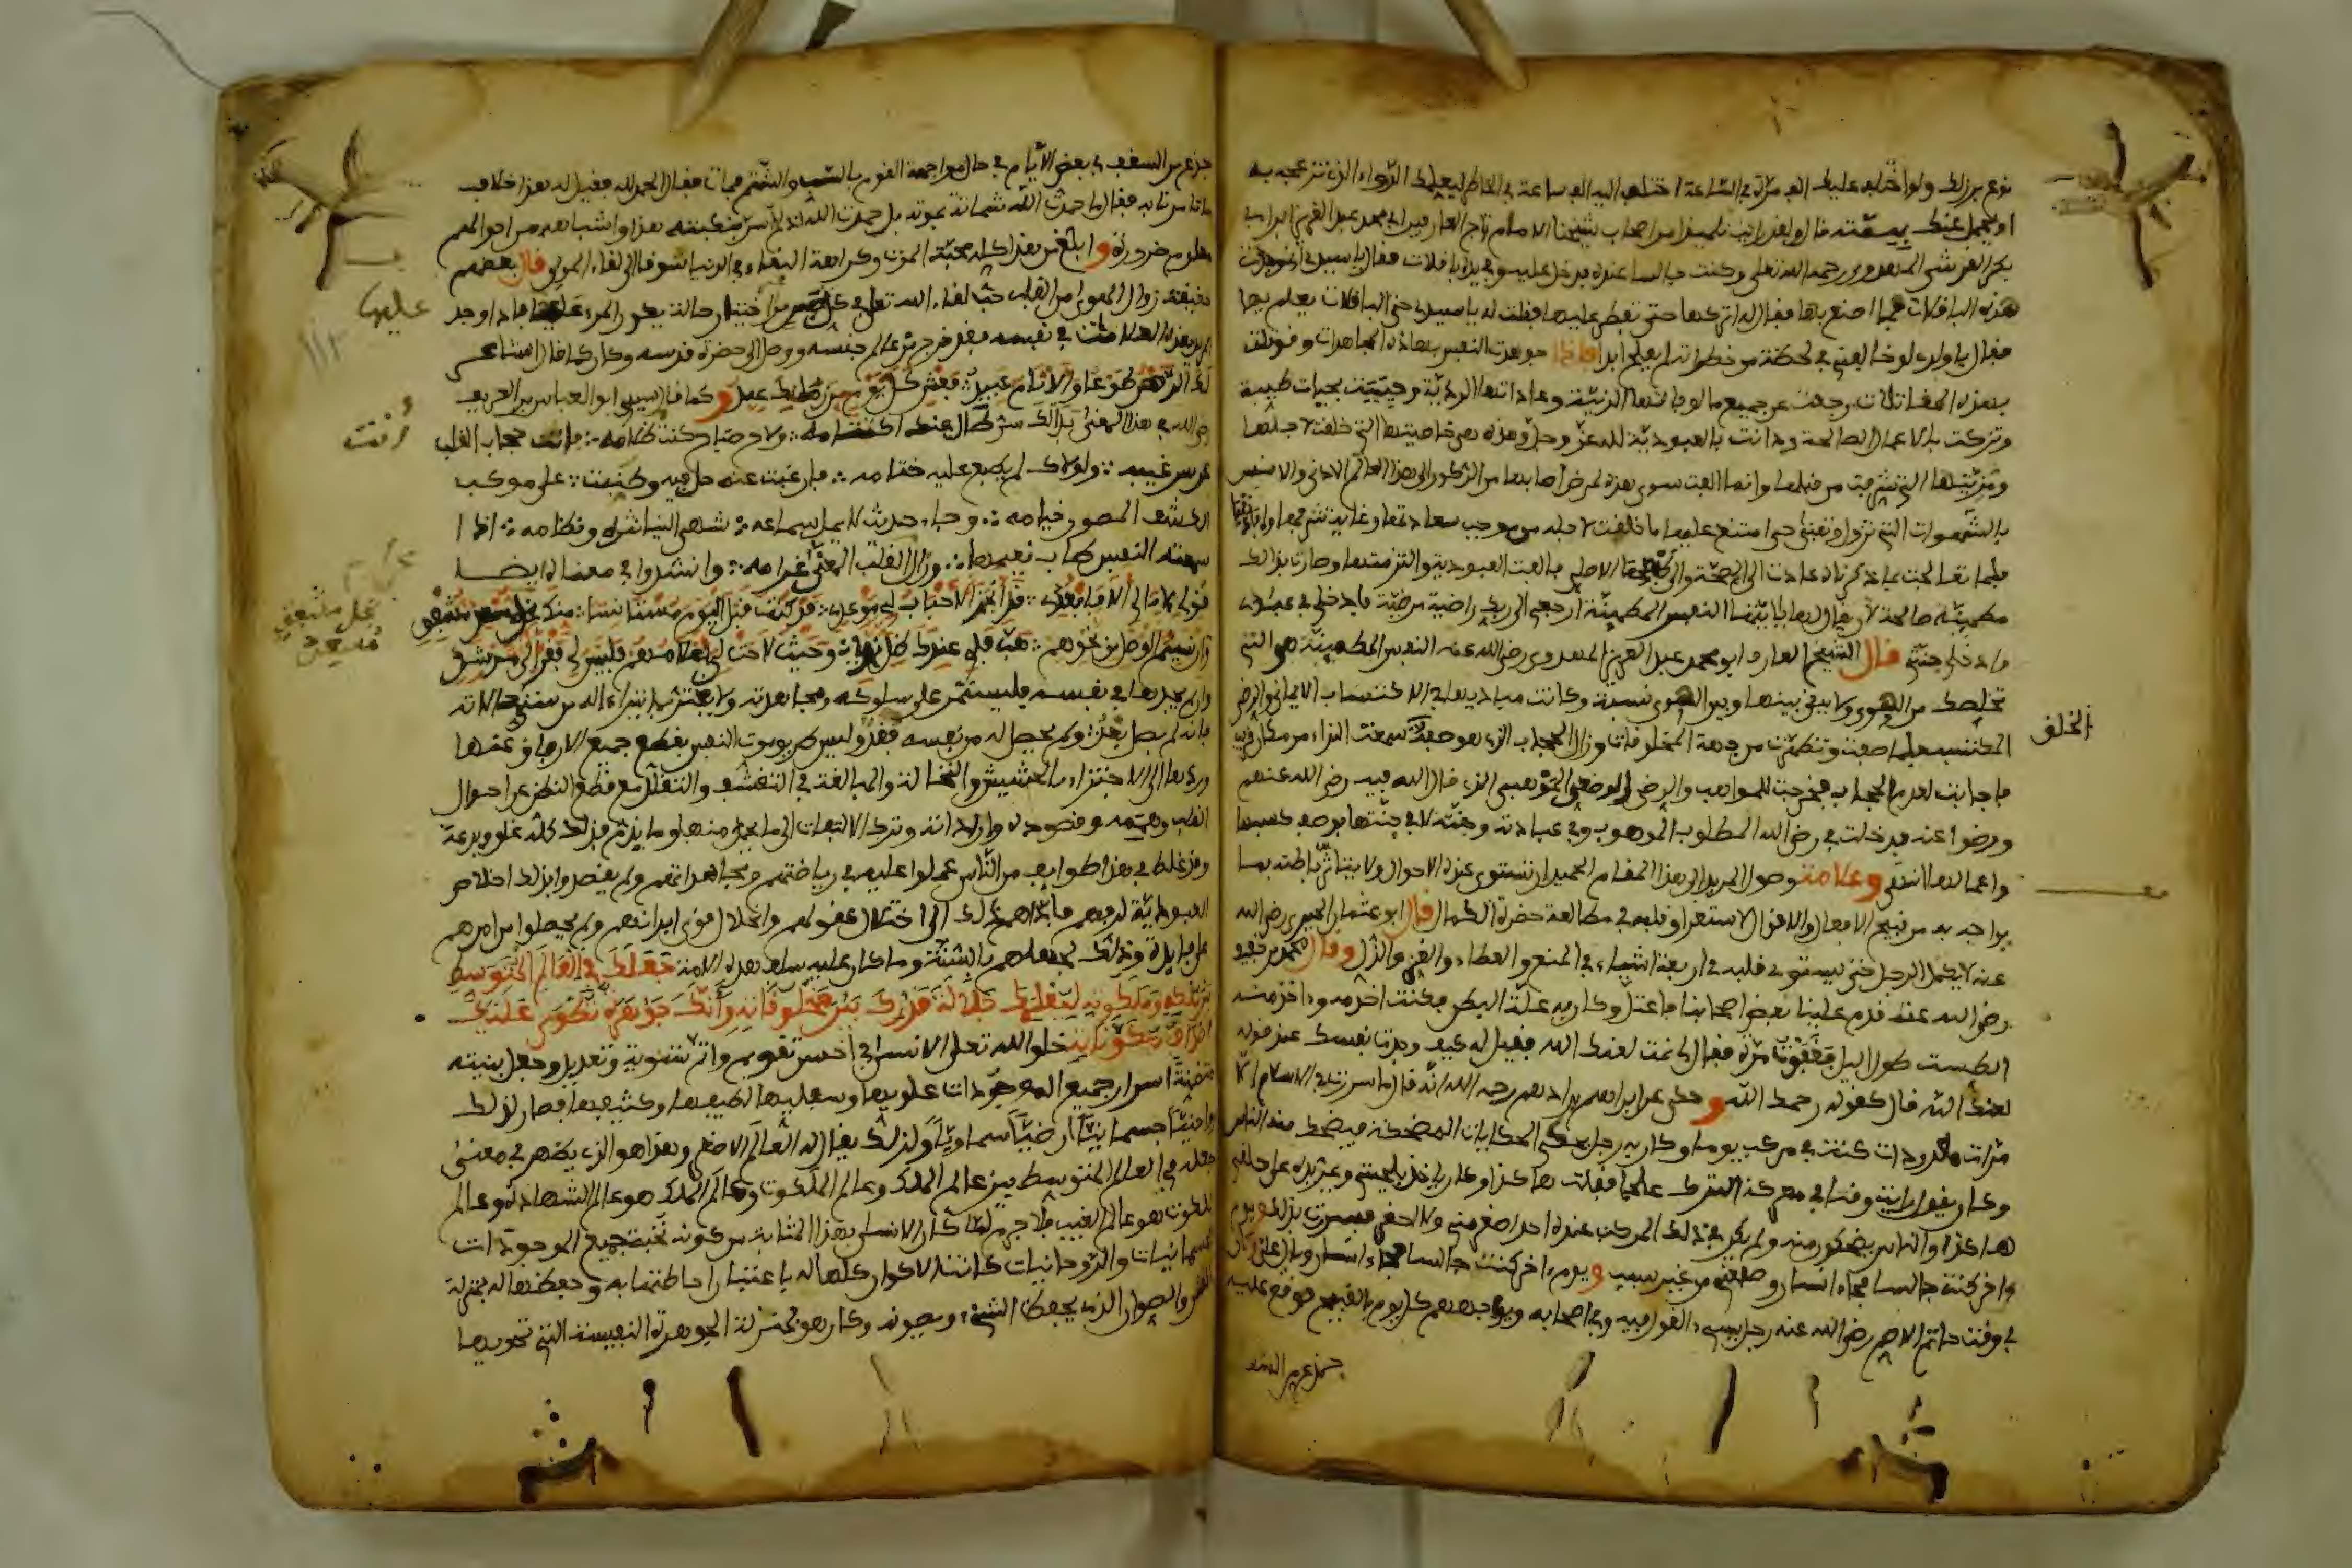 نوع من ذلك ولو اختلف عليك الف مرة في الساعة اختلف اليه الف ساعة في الخاطر ليعطيك الدواء الذي تنزعج به
بكر القرشي المهدوي رحمه الله تعلى وكنت جالسا عنده فدخل عليه وفي يده باقلات فقال يا سيدي اني وجدت
هذه الباقلات فما اصنع بها فقال له اتركها حتى تفطر عليها فقلت له يا سيدي حتى الباقلات يعلم بها
فقال يا ولدي لو خالفني في لحظة من خطراته لم يفلح ابدا فاذا جوهدت النفس بهاذه المجاهدات وقوتلت
بهذه المقاتلات رجعت عن جميع مالوفاتها الدنية وعاداتها الردية وحييت بحياة طيبة
وتزكت بالاعمال الصالحة ودانت بالعبودية لله عز وجل وهذه هي خاصيتها التي خلقت لاجلها
ومزيتها التي شرفت من قبلها وانما الفت سوى هذه لمرض اصابها من الركون الى هذا العالم الادنى والانس
بالشهوات التي تزول وتفنى حتى امتنع عليها ما خلقت لاجله من موجب سعادتها وغاية شرفها وافادتها
مطمينة صالحة لان يقال لها يا ايتها النفس المطمينة ارجعي الى ربك راضية مرضية فادخلي في عبادي
وادخلي جنتي قال الشيخ العارف ابو محمد عبد العزيز المهدوي رضي الله عنه النفس المطمينة هي التي
تخلصت من الهوى ولا بقي بينها وبين الهوى نسبة وكانت مباديها في الاكتساب الايماني والرضى
الخلق
المكتسب فلما صفت وتطهرت من جهة المخلوقات وزال الحجاب الذي هو صفة سمعت النداء من مكان قريب
فاجابت لعدم الحجاب فخرجت للمواهب والرضى الموهبي الذي قال الله فيه رضي الله عنهم
ورضوا عنه فدخلت في رضى الله المطلوب الموهوب وفي عباده وجنته لا في جنتها برضى كسبها
واعمالها انتهى وعلامة وصول المريد الى هذا المقام الحميد ان تستوي عنده الاحوال ولا يتاثر باطنه بما
يواجه به من قبيح الافعال والاقوال لاستغراق قلبه في مطالعة حضرة الكمال قال ابو عثمان الحيري رضي الله
عنه لا يكمل الرجل حتى يستوي قلبه في اربعة اشياء في المنع والعطاء والعز والذل وقال محمد بن خفيف
رضي الله عنه قدم علينا بعض اصحابنا فاعتل وكان به علة البطن فكنت اخدمه واخذ منه
الطست طول الليل فغفوت مرة فقال لي نمت لعنك الله فقيل له كيف وجدت نفسك عند قوله
لعنك الله قال كقوله رحمك الله وحكي عن ابراهيم بن ادهم رحمه الله انه قال ما سررت في الاسلام الا
مرات معدودات كنت في مركب يوما وكان به رجل يحكي الحكايات المضحكة فيضحك منه الناس
وكان يقول رايت وقتا في معركة الترك علجا فقلت هاكذا وكان ياخذ بلحيتي ويمر يده على حلقي
هاكذا والناس يضحكون منه ولم يكن في ذلك المركب عنده احد اصغر مني ولا احقر فسررت بذلك ويوم
واخر كنت جالسا فجاء انسان وصفعني من غير سبب ويوم اخر كنت جالسا فجاء انسان وبال علي وكان
في وقت حاتم الاصم رضي الله عنه رجل يسيء القول فيه وفي اصحابه ويواجههم كل يوم بالقبيح فوقع عليه
جذع من السقف
جذع من السقف في بعض الايام في حال مواجهة القوم بالسب والشتم فمات فقال الحمد لله فقيل له هذا خلاف
ما تامرنا به فقال ما حمدت الله شماتة بموته بل حمدت الله اذ لم اسر بنكبته هذا واشباهه من احوالهم
معلوم ضرورة وابلغ من هذا كله محبة الموت وكراهة البقاء في الدنيا شوقا الى لقاء المولى قال بعضهم
حقيقة زوال الهوى من القلب حب لقاء الله تعلى في كل نفس من غير اختيار حالة يكون المرء عليها فاذا وجد
عليها
المريد هذه العلامات في نفسه فقد خرج من عالم جنسه ووصل الى حضرة قدسه وكان كما قال الشاعر
لك الدهر طوعا والانام عبيد ∴ فعش كل يوم من زمانك عيد وكما قال سيدي ابو العباس بن العريف
رضي الله عنه في هذا المعنى بدا لك سر طال عنك اكتتامه ∴ ولاح صباح كنت ظلامه ∴ فانت حجاب القلب
أنت
عن سر غيبه ∴ ولولاك لم يطبع عليه ختامه ∴ فان غبت عنه حل فيه وطنبت ∴ على موكب
الكشف المصون خيامه ∴ وجاء حديث لا يمل سماعه ∴ شهي الينا نثره ونظامه ∴ اذا
سمعته النفس طاب نعيمها ∴ وزال عن القلب المعنى غرامه ∴ وانشدوا في معناه ايضا
وان لم يجدها في نفسه فليستمر على سلوكه ومجاهدته ولا يغتر بما يتراءا له من سني حالاته
فانه لم يصل بعد ولم يحصل له من نفسه فقد وليس طريق موت النفس بقطع جميع الارفاق عنها
وردها الى الاجتزاء بالحشيش والنخالة والمبالغة في التقشف والتقلل مع قطع النظر عن احوال
القلب وهممه وقصوده وارادته وترك الالتفات الى ما يحمد منها وما يذم فذلك كله غلو وبدعة
وقد غلط في هذا طوايف من الناس عملوا عليه في رياضتهم ومجاهداتهم ولم يقصدوا بذلك اخلاص
العبودية لربهم فاداهم ذلك الى اختلال عقولهم وانحلال قوى ابدانهم ولم يحصلوا من امرهم
على فايدة وذلك لجهلهم بالسنة وما كان عليه سلف هذه الامة جعلك في العالم المتوسط
بين ملكه وملكوته ليعلمك جلالة قدرك بين مخلوقاته وانك جوهرة تنطوي عليك
اصداف مكوناته خلق الله تعلى الانسان في احسن تقويم واتم تسوية وتعديل وجعل بنيته
متضمنة اسرار جميع الموجودات علويها وسفليها لطيفها وكثيفها فصار لذلك
روحانيا جسمانيا ارضيا سماويا ولذلك يقال له العالم الاصغر وهذا هو الذي يظهر في معنى
جعله في العالم المتوسط بين عالم الملك وعالم الملكوت وعالم الملك هو عالم الشهادة وعالم
الملكوت هو عالم الغيب فلا جرم لما كان الانسان بهذا المثابة من كونه نخبة جميع الموجودات
الجسمانيات والروحانيات كانت الاكوان كلها له باعتبار احاطتها به وحفظها له بمنزلة
القشر والصوان الذي يحفظ الشيء ويصونه وكان هو بمنزلة الجوهرة النفيسة التي تحويها